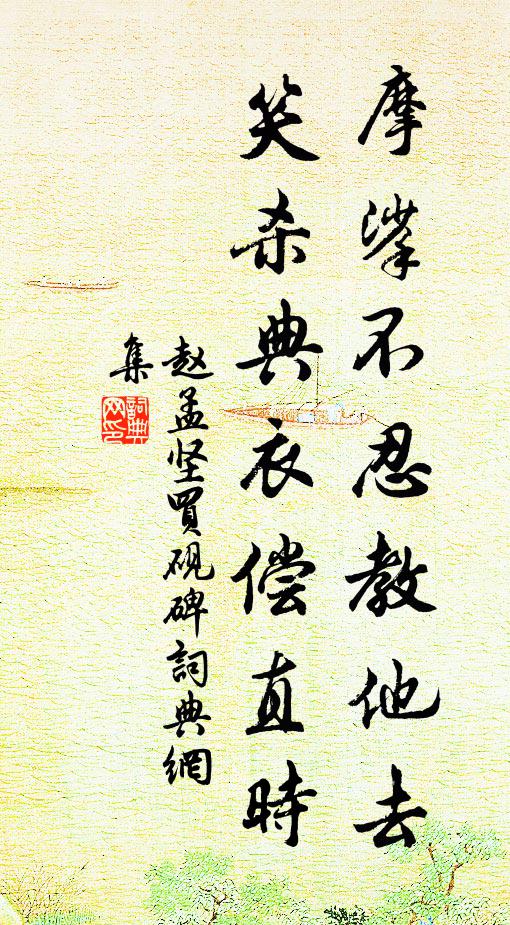 摩挲不忍教他去
笑杀典衣偿直时
赵孟坚買砚碑詞典網
集
詞典
网印